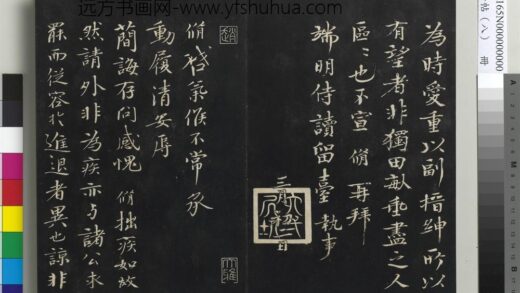 远方书画网-www.yfshuhua.com
為時愛重以副搢紳所以
有望者非獨田畝垂盡之人
區區也不宣 脩 再拜
端明侍讀留臺 執事
三月 日
脩啓氣候不常承
動履清安辱
簡誨存問感愧 脩拙疾如故
然請外非為疾亦与諸公求
罷而從容於進退者異也諒非
165N000000000
帖(八) 冊